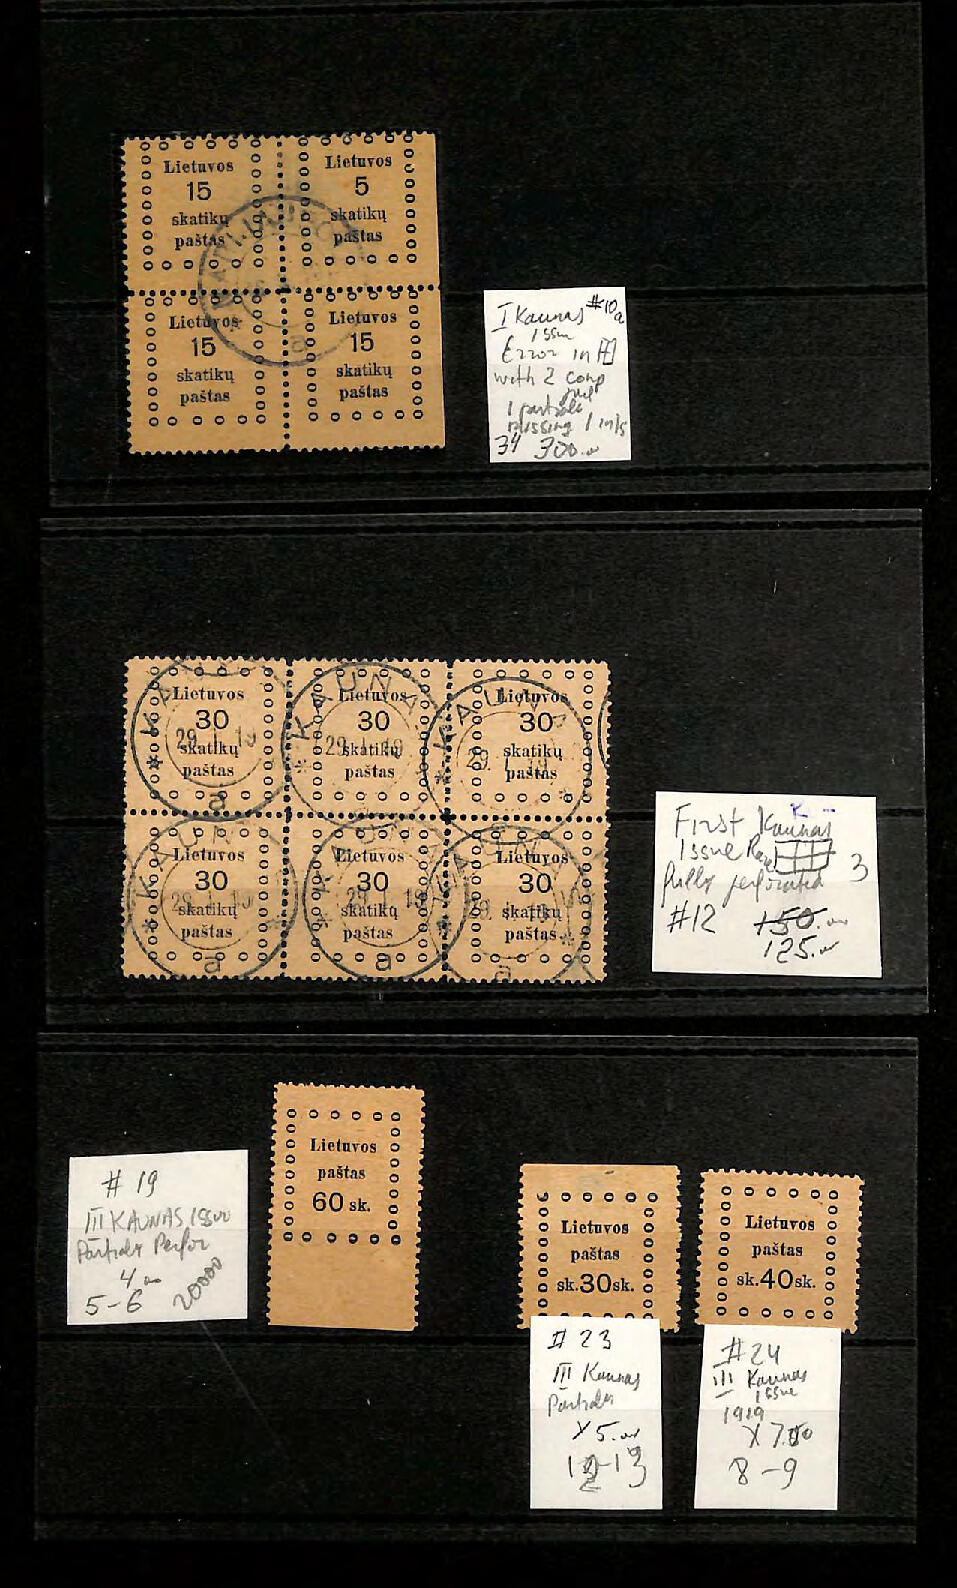 Lietuvos
15
skatikų
paštas
Lietuvos
5
skatikų
paštas
Lietuvos
15
skatikų
paštas
Lietuvos
15
skatikų
paštas
a
I Kaunas #10a
Issue
Error in
with 2 comp
1 partial
missing
300.00
Lietuvos
30
skatikų
paštas
KA
29. 1. 19
a
Lietuvos
30
skatikų
paštas
KAUNA
29. 1. 19
Lietuvos
30
skatikų
paštas
KAUNA
29. 1. 19
Lietuvos
30
skatikų
paštas
KAUN
29. 1. 19
a
Lietuvos
30
skatikų
paštas
29. 1. 19
a
Lietuvos
30
skatikų
paštas
a
First Kaunas
Issue Rare
fully perforated
3
#12 150.00
125.00
# 19
III KAUNAS Issue
Perfor
4.00
5-6 20000
Lietuvos
paštas
60 sk.
Lietuvos
paštas
sk.30sk.
Lietuvos
paštas
sk.40sk.
# 23
III Kaunas
X 5.00
#24
III Kaunas
Issue
1919
X 7.50
8-9